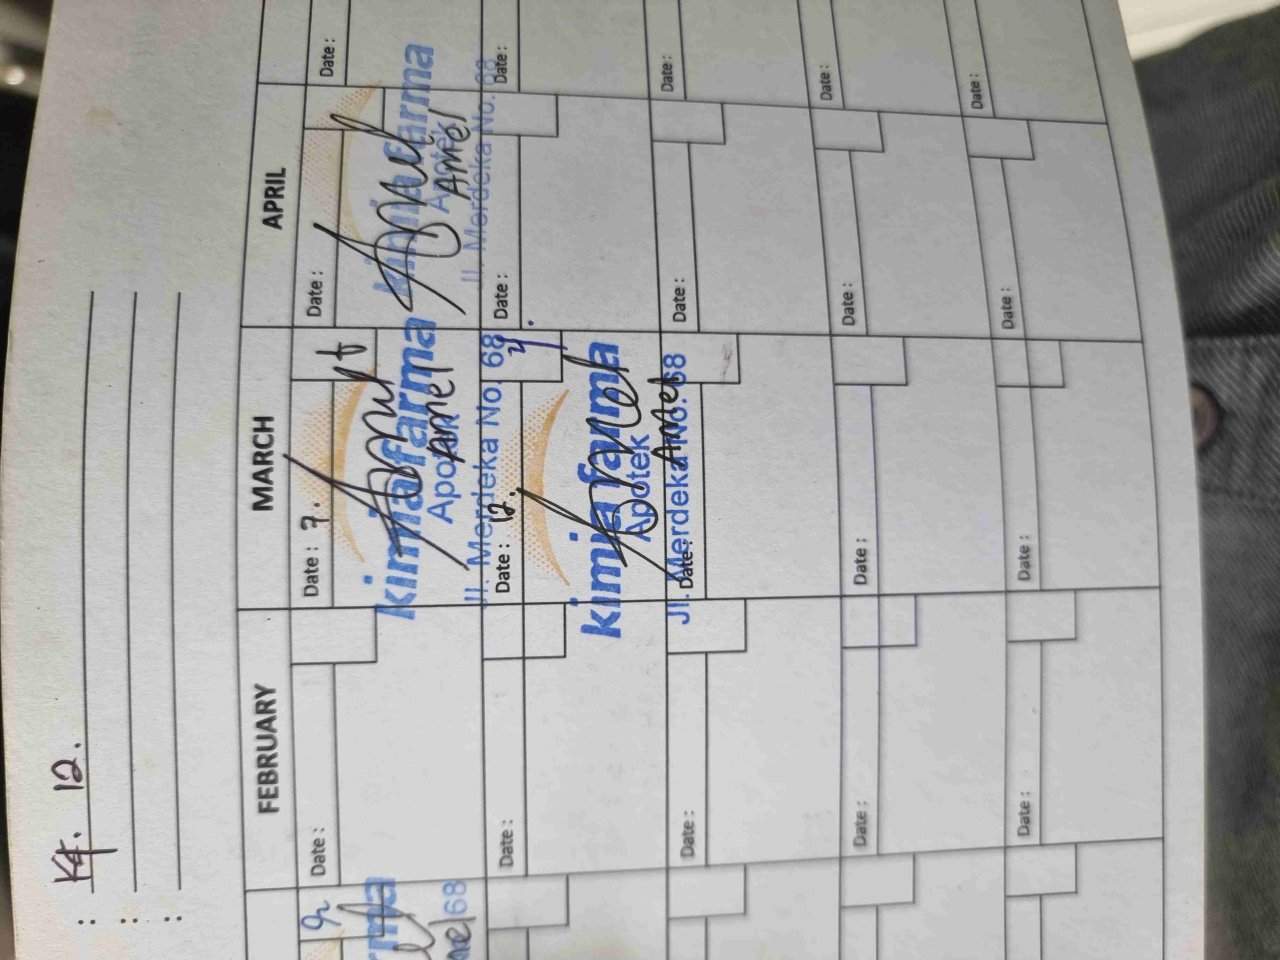 : K4. 12.
:
:
FEBRUARY
MARCH
APRIL
Date :
Date : 7.
Date :
Date :
kimia farma
Apotek
Jl. Merdeka No. 68
Amel
kimia farma
Apotek
Jl. Merdeka No. 68
Amel
68
Date :
Date : 12.
Date :
Date :
kimia farma
Apotek
Jl. Merdeka No. 68
Amel
Date :
Date :
Date :
Date :
Date :
Date :
Date :
Date :
Date :
Date :
Date :
Date :